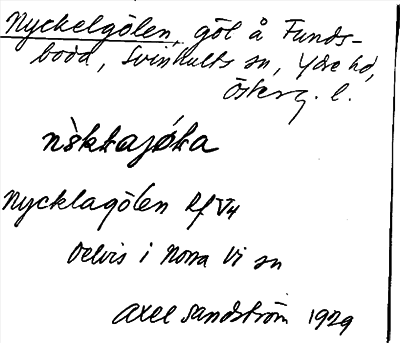 Nyckelgölen, göl å Funds-
boda, Svinhults sn, Ydre hd,
Österg. l.
nẁkkajø̀ka
Nycklagölen Rf V4
Delvis i Norra Vi sn
Axel Sandström 1929